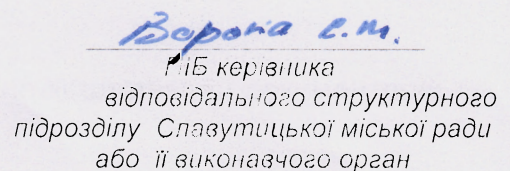 Ворона Є.М.
ПІБ керівника
відповідального структурного
підрозділу Славутицької міської ради
або її виконавчого орган